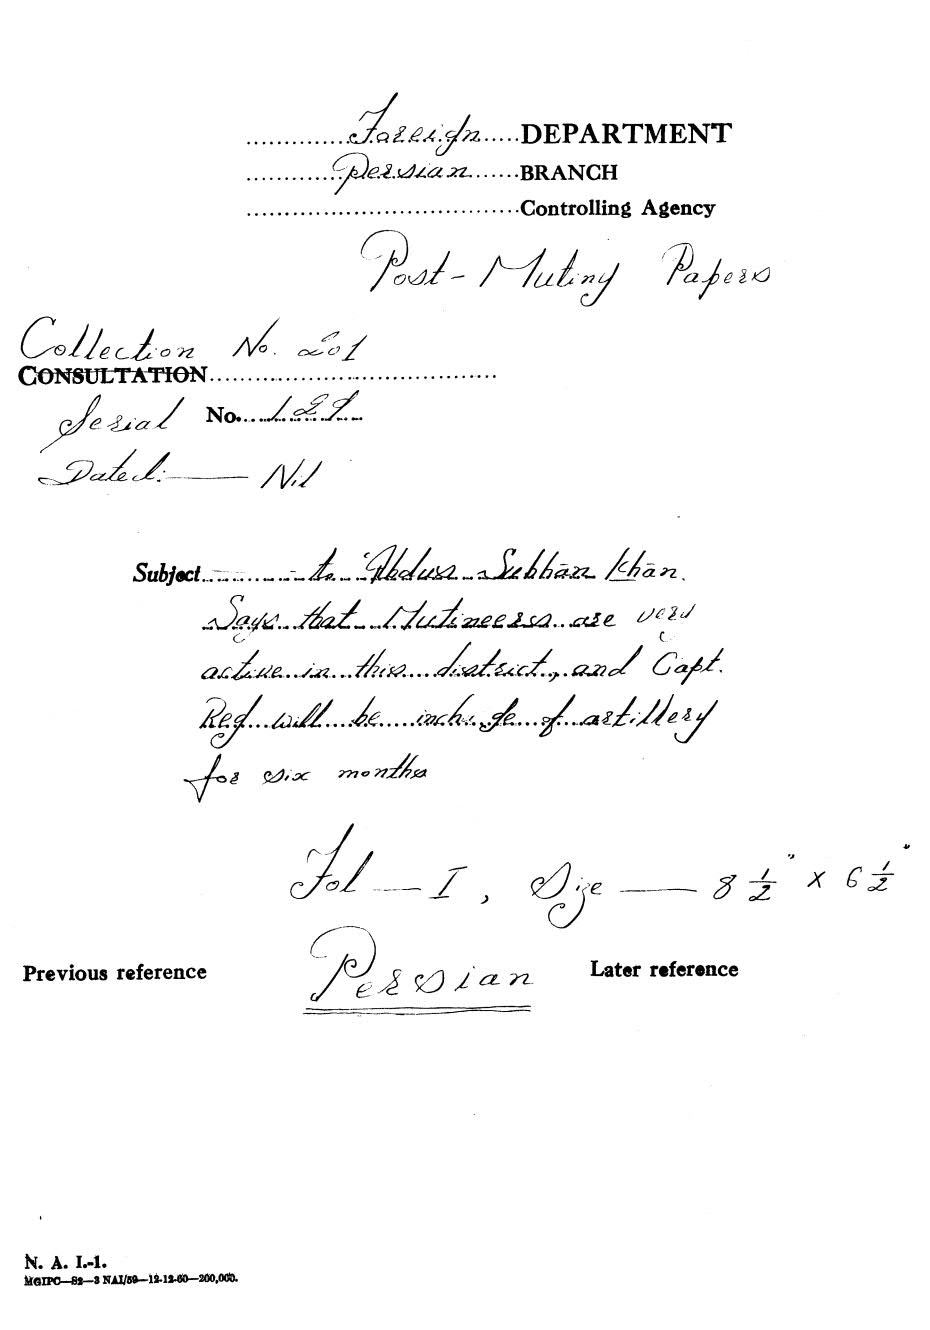 Foreign DEPARTMENT
Persian BRANCH
Controlling Agency
Post-Mutiny Papers
Collection No. 201
CONSULTATION
Serial No. 129
Dated:— Nil
Subject — to 'Abdus Subhān Khān.
Says that Mutineers are very
active in this district, and Capt.
Reg will be incharge of artillery
for six months
Fol — I, Size — 8 1/2" x 6 1/2"
Previous reference Persian Later reference
N. A. I.-1.
MGIPC—S2—3 NAI/59—12-12-60—200,000.